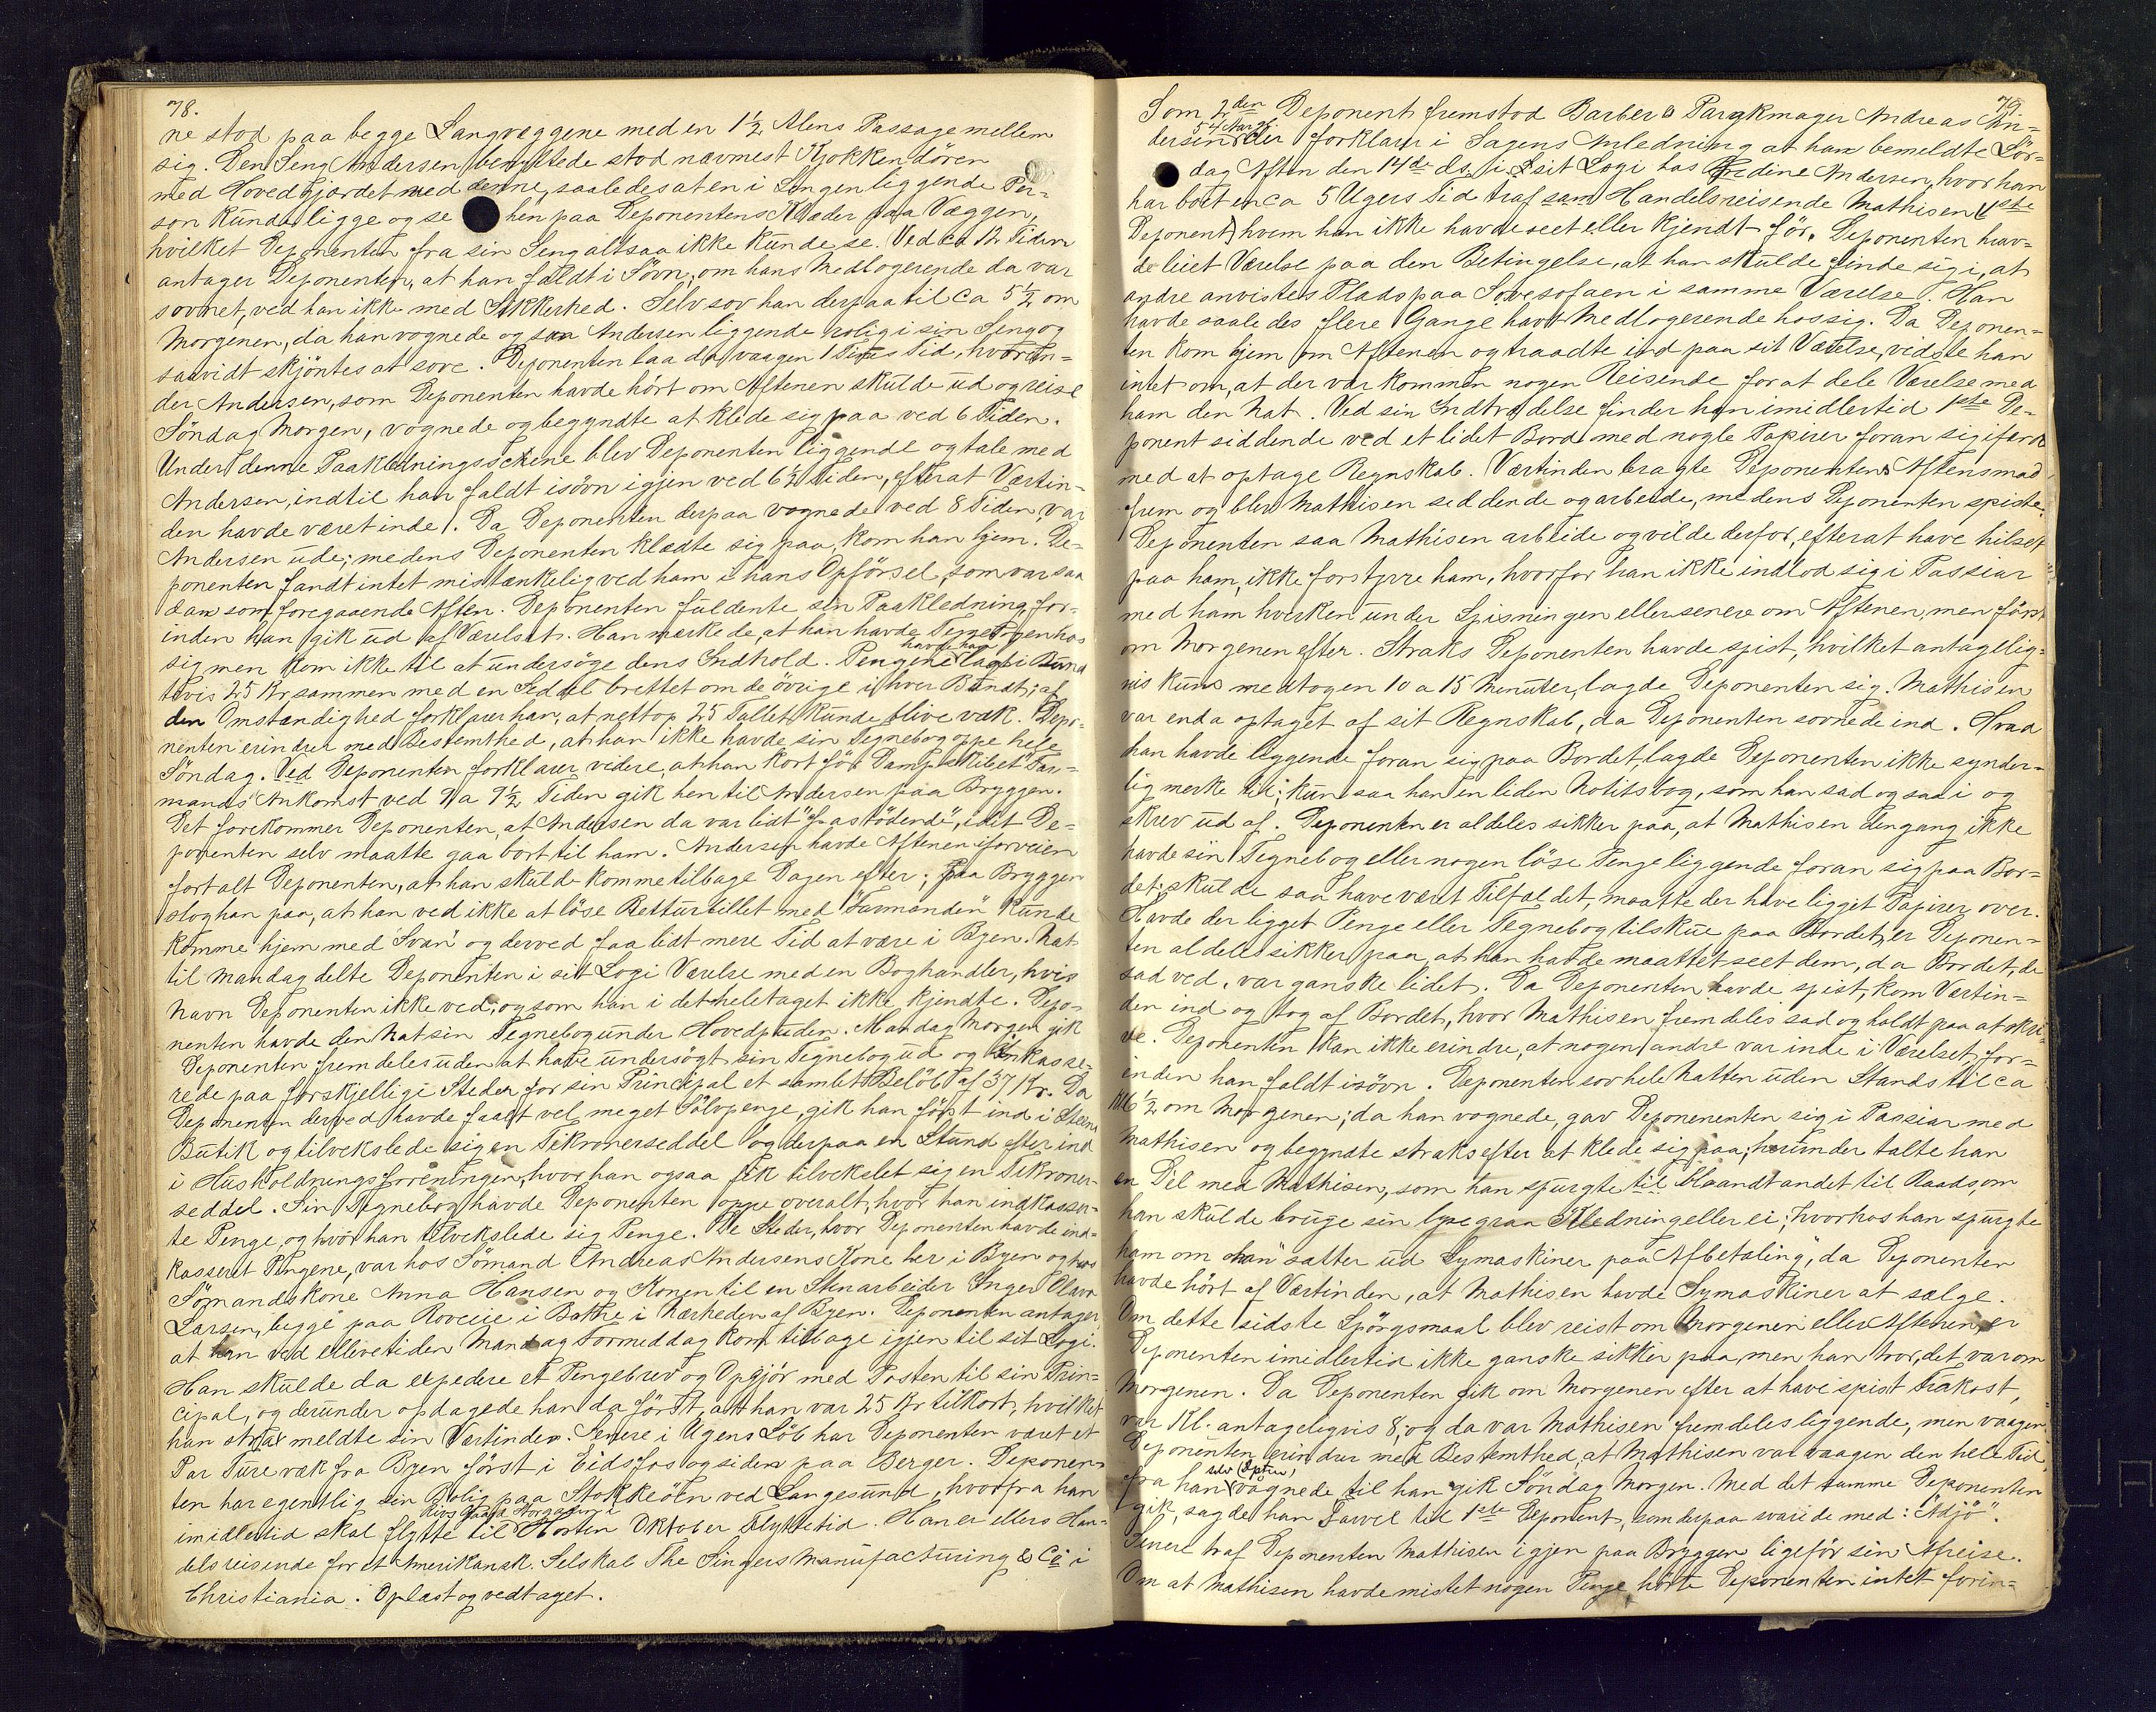 78.
ne stod paa begge Langvæggene med en 1½ Alens Passage mellem
sig. Den Seng Andersen benyttede stod nærmest Kjøkkendören
med Hovedgjærdet mod denne, saaledes at en i Sengen liggende Per-
son kunde ligge og se hen paa Deponentens Klæder paa Væggen,
hvilket Deponenten fra sin Seng altsaa ikke kunde se. Ved ca 12 Tiden
antager Deponenten, at han faldt i Sövn; om hans Medlogerende da var
sovnet, ved han ikke med Sikkerhed. Selv sov han derpaa til ca 5½ om
Morgenen, da han vognede og saa Andersen liggende rolig i sin Seng og
saavidt skjöntes at sove. Deponenten laa da vaagen 1 Times Tid, hvoran-
der Andersen, som Deponenten havde hört om Aftenen skulde ud og reise
Söndag Morgen, vognede og begyndte at klede sig paa ved 6 Tiden.
Under denne Paakledningsscene blev Deponenten liggende og tale med
Andersen, indtil han faldt isövn igjen ved 6½ Tiden, efterat Værtin-
den havde været inde. Da Deponenten derpaa vognede ved 8 Tiden, var
Andersen ude; medens Deponenten klædte sig paa, kom han hjem. De-
ponenten fandt intet mistænkelig ved ham i hans Opförsel, som var saa
dan som foregaaende Aften. Deponenten fuldente sin Paakledning, for-
inden han gik ud af Værelset. Han merkede, at han havde Tegnebogen hos
sig men kom ikke til at undersöge dens Indhold. Pengene havde han lagt i Bund
tevis 25 Kr sammen med en Seddel brettet om de övrige i hver Bundt; af
den Omstændighed forklarer han, at nettop 25 Tallet kunde blive væk. Depo-
nenten erindrer med Bestemthed, at han ikke havde sin Tegnebog oppe hele
Söndag. Ved Deponenten forklarer videre, at han kort för Dampskibet "Far-
mands" Ankomst ved 9 a 9½ Tiden gik hen til Andersen paa Bryggen.
Det forekommer Deponenten, at Andersen da var lidt "frastödende", idet De-
ponenten selv maatte gaa bort til ham. Andersen havde Aftenen iforveien
fortalt Deponenten, at han skulde komme tilbage Dagen efter; paa Bryggen
slog han paa, at han ved ikke at löse Retturbillet med "Farmanden" kunde
komme hjem med "Svan" og derved faa lidt mere Tid at være i Byen. Nat
til Mandag delte Deponenten i sit Logi Værelse med en Boghandler, hvis
Navn Deponenten ikke ved, og som han i det heletaget ikke kjendte. Depo-
nenten havde den Nat sin Tegnebog under Hovedpuden. Mandag Morgen gik
Deponenten fremdeles uden at have undersögt sin Tegnebog ud og inkasse-
rede paa forskjellige Steder for sin Principal et samlet Belöb af 37 Kr. Da
Deponenten derved havde faaet vel meget Sölvpenge, gik han först ind i Steens
Butik og tilvekslede sig en Tikronerseddel og derpaa en Stund efter ind
i Husholdningsforeningen, hvor han ogsaa fik tilvekslet sig en Tikroner-
seddel. Sin Tegnebog havde Deponenten oppe overalt, hvor han indkasser-
te Penge, og hvor han tilvekslede sig Penge. De Steder, hvor Deponenten havde ind-
kasseret Pengene, var hos Sömand Andreas Andersens Kone her i Byen og hos
Sömandskone Anna Hansen og Konen til en Stenarbeider Inger Olava
Larsen, begge paa Roveie i Bothne i Nærheden af Byen. Deponenten antager
at han ved ellevetiden Mandag Formeddag kom tilbage igjen til sit Logi.
Han skulde da expedere et Pengebrev og Opgjör med Posten til sin Prin-
cipal, og derunder opdagede han da först, at han var 25 Kr tilkort, hvilket
han strax meldte sin Værtinde. Senere i Ugens Löb har Deponenten været et
Par Ture væk fra Byen först i Eidsfos og siden paa Berger. Deponen-
ten har egentlig sin Bolig paa Stokkeöen ved Langesund, hvorfra han
imidlertid skal flytte til Horten Oktober Flyttetid. Han er ellers Han-
delsreisende for et Amerikansk Selskab The Singers Manufacturing & Co i
Christiania. Oplæst og vedtaget.
79.
Som 2den Deponent fremstod Barber & Parykmager Andreas An-
dersen 54 Aar gl. der forklarer i Sagens Anledning at han bemeldte Lör-
dag Aften den 14de ds. i sit Logi hos Fredine Andersen, hvor han
har boet en ca 5 Ugers Tid traf sam Handelsreisende Mathisen (1ste
Deponent) hvem han ikke havde seet eller kjendt för. Deponenten hav-
de leiet Værelse paa den Betingelse, at han skulde finde sig i, at
andre anvistes Plads paa Sovesofaen i samme Værelse. Han
havde saaledes flere Gange havt Medlogerende hos sig. Da Deponen-
ten kom hjem om Aftenen og traadte ind paa sit Værelse, vidste han
intet om, at der var kommen nogen Reisende for at dele Værelse med
ham den Nat. Ved sin Indtrædelse finder han imidlertid 1ste De-
ponent siddende ved et lidet Bord med nogle Papirer foran sig ifærd
med at optage Regnskab. Værtinden bragte Deponentens Aftensmad
frem og blev Mathisen siddende og arbeide, medens Deponenten spiste.
Deponenten saa Mathisen arbeide og vilde derfor, efterat have hilset
paa ham, ikke forstyrre ham, hvorfor han ikke indlod sig i Passiar
med ham hverken under Spisningen eller senere om Aftenen, men först
om Morgenen efter. Straks Deponenten havde spist, hvilket antagelig-
vis kuns medtogen 10 a 15 Minuter, lagde Deponenten sig. Mathisen
var enda optaget af sit Regnskab, da Deponenten sovnede ind. Hvad
han havde liggende foran sig paa Bordet, lagde Deponenten ikke synder-
lig merke til; kun saa han en liden Notitsbog, som han sad og saa i og
skrev ud af. Deponenten er aldeles sikker paa, at Mathisen dengang ikke
havde sin Tegnebog eller nogen löse Penge liggende foran sig paa Bor-
det; skulde saa have været Tilfældet, maatte der have ligget Papirer over.
Havde der ligget Penge eller Tegnebog tilskue paa Bordet, er Deponen-
ten aldeles sikker paa, at han havde maattet seet dem, da Bordet, de
sad ved, var ganske lidet. Da Deponenten havde spist, kom Værtin-
den ind og tog af Bordet, hvor Mathisen fremdeles sad og holdt paa at skri-
ve. Deponenten kan ikke erindre, at nogen andre var inde i Værelset, for-
inden han faldt isövn. Deponenten sov hele Natten uden Stands til ca
Kl 6½ om Morgenen; da han vognede, gav Deponenten sig i Passiar med
Mathisen og begyndte straks efter at klede sig paa; herunder talte han
en Del med Mathisen, som han spurgte til blaandt andet til Raads, om
han skulde bruge sin lyse graa Kledning eller ei; hvorhos han spurgte
ham om han "satter ud Symaskiner paa Afbetaling", da Deponenten
havde hört af Værtinden, at Mathisen havde Symaskiner at sælge.
Om dette sidste Spörgsmaal blev reist om Morgenen eller Aftenen, er
Deponenten imidlertid ikke ganske sikker paa, men han tror, det var om
Morgenen. Da Deponenten gik om Morgenen efter at have spist Frokost,
var Kl. antageligvis 8, og da var Mathisen fremdeles liggende, men vaagen.
Deponenten erindrer med Bestemthed, at Mathisen var vaagen den hele Tid,
fra han selv vognede til han gik Söndag Morgen. Med det samme Deponenten
gik, sagde han Farvel til 1ste Deponent, som derpaa svarede med: "Adjö".
Senere traf Deponenten Mathisen igjen paa Bryggen ligeför sin Afreise.
Om at Mathisen havde mistet nogen Penge, hörte Deponenten intet forin-